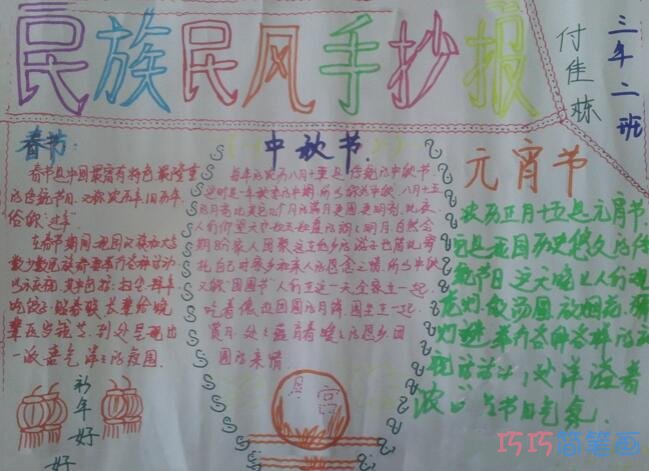 民族民风手抄报
付佳栋
三年二班
春节:
春节是中国最富有特色最隆重
的传统节日,又称农历年旧历年,
俗称"过年"
在春节期间,我国汉族和大
多少数民族都要举行各种活动
以示庆祝,其中包括:扫尘,拜年,
吃饺子,贴春联,长辈给晚
辈压岁钱等,到处呈现出
一派喜气洋洋的氛围
新年好
好
中秋节
每年农历八月十五是传统的中秋节
这时是一年秋季的中期,所以称为中秋,八月十五
的月亮比其它几个月的满月更圆,更明亮,此夜,
人们仰望天空如玉如盘的朗朗明月,自然会
期盼家人团聚,远在他乡的游子也借此寄
托自己对家乡和亲人的思念之情,所以中秋
又称"团圆节"人们在这一天全家在一起,
吃着像也团圆的月饼,围坐在一起,
赏月,处处蕴育着暖暖的思乡,团
圆的亲情
元宵节
农历正月十五是元宵节,
它是我国历史悠久的传
统节日,这天晚上人们观
花灯,做汤圆,放烟花,猜
灯谜,举行各种各样的庆
祝活动,处处洋溢着
浓浓的节日气氛.
巧巧简笔画